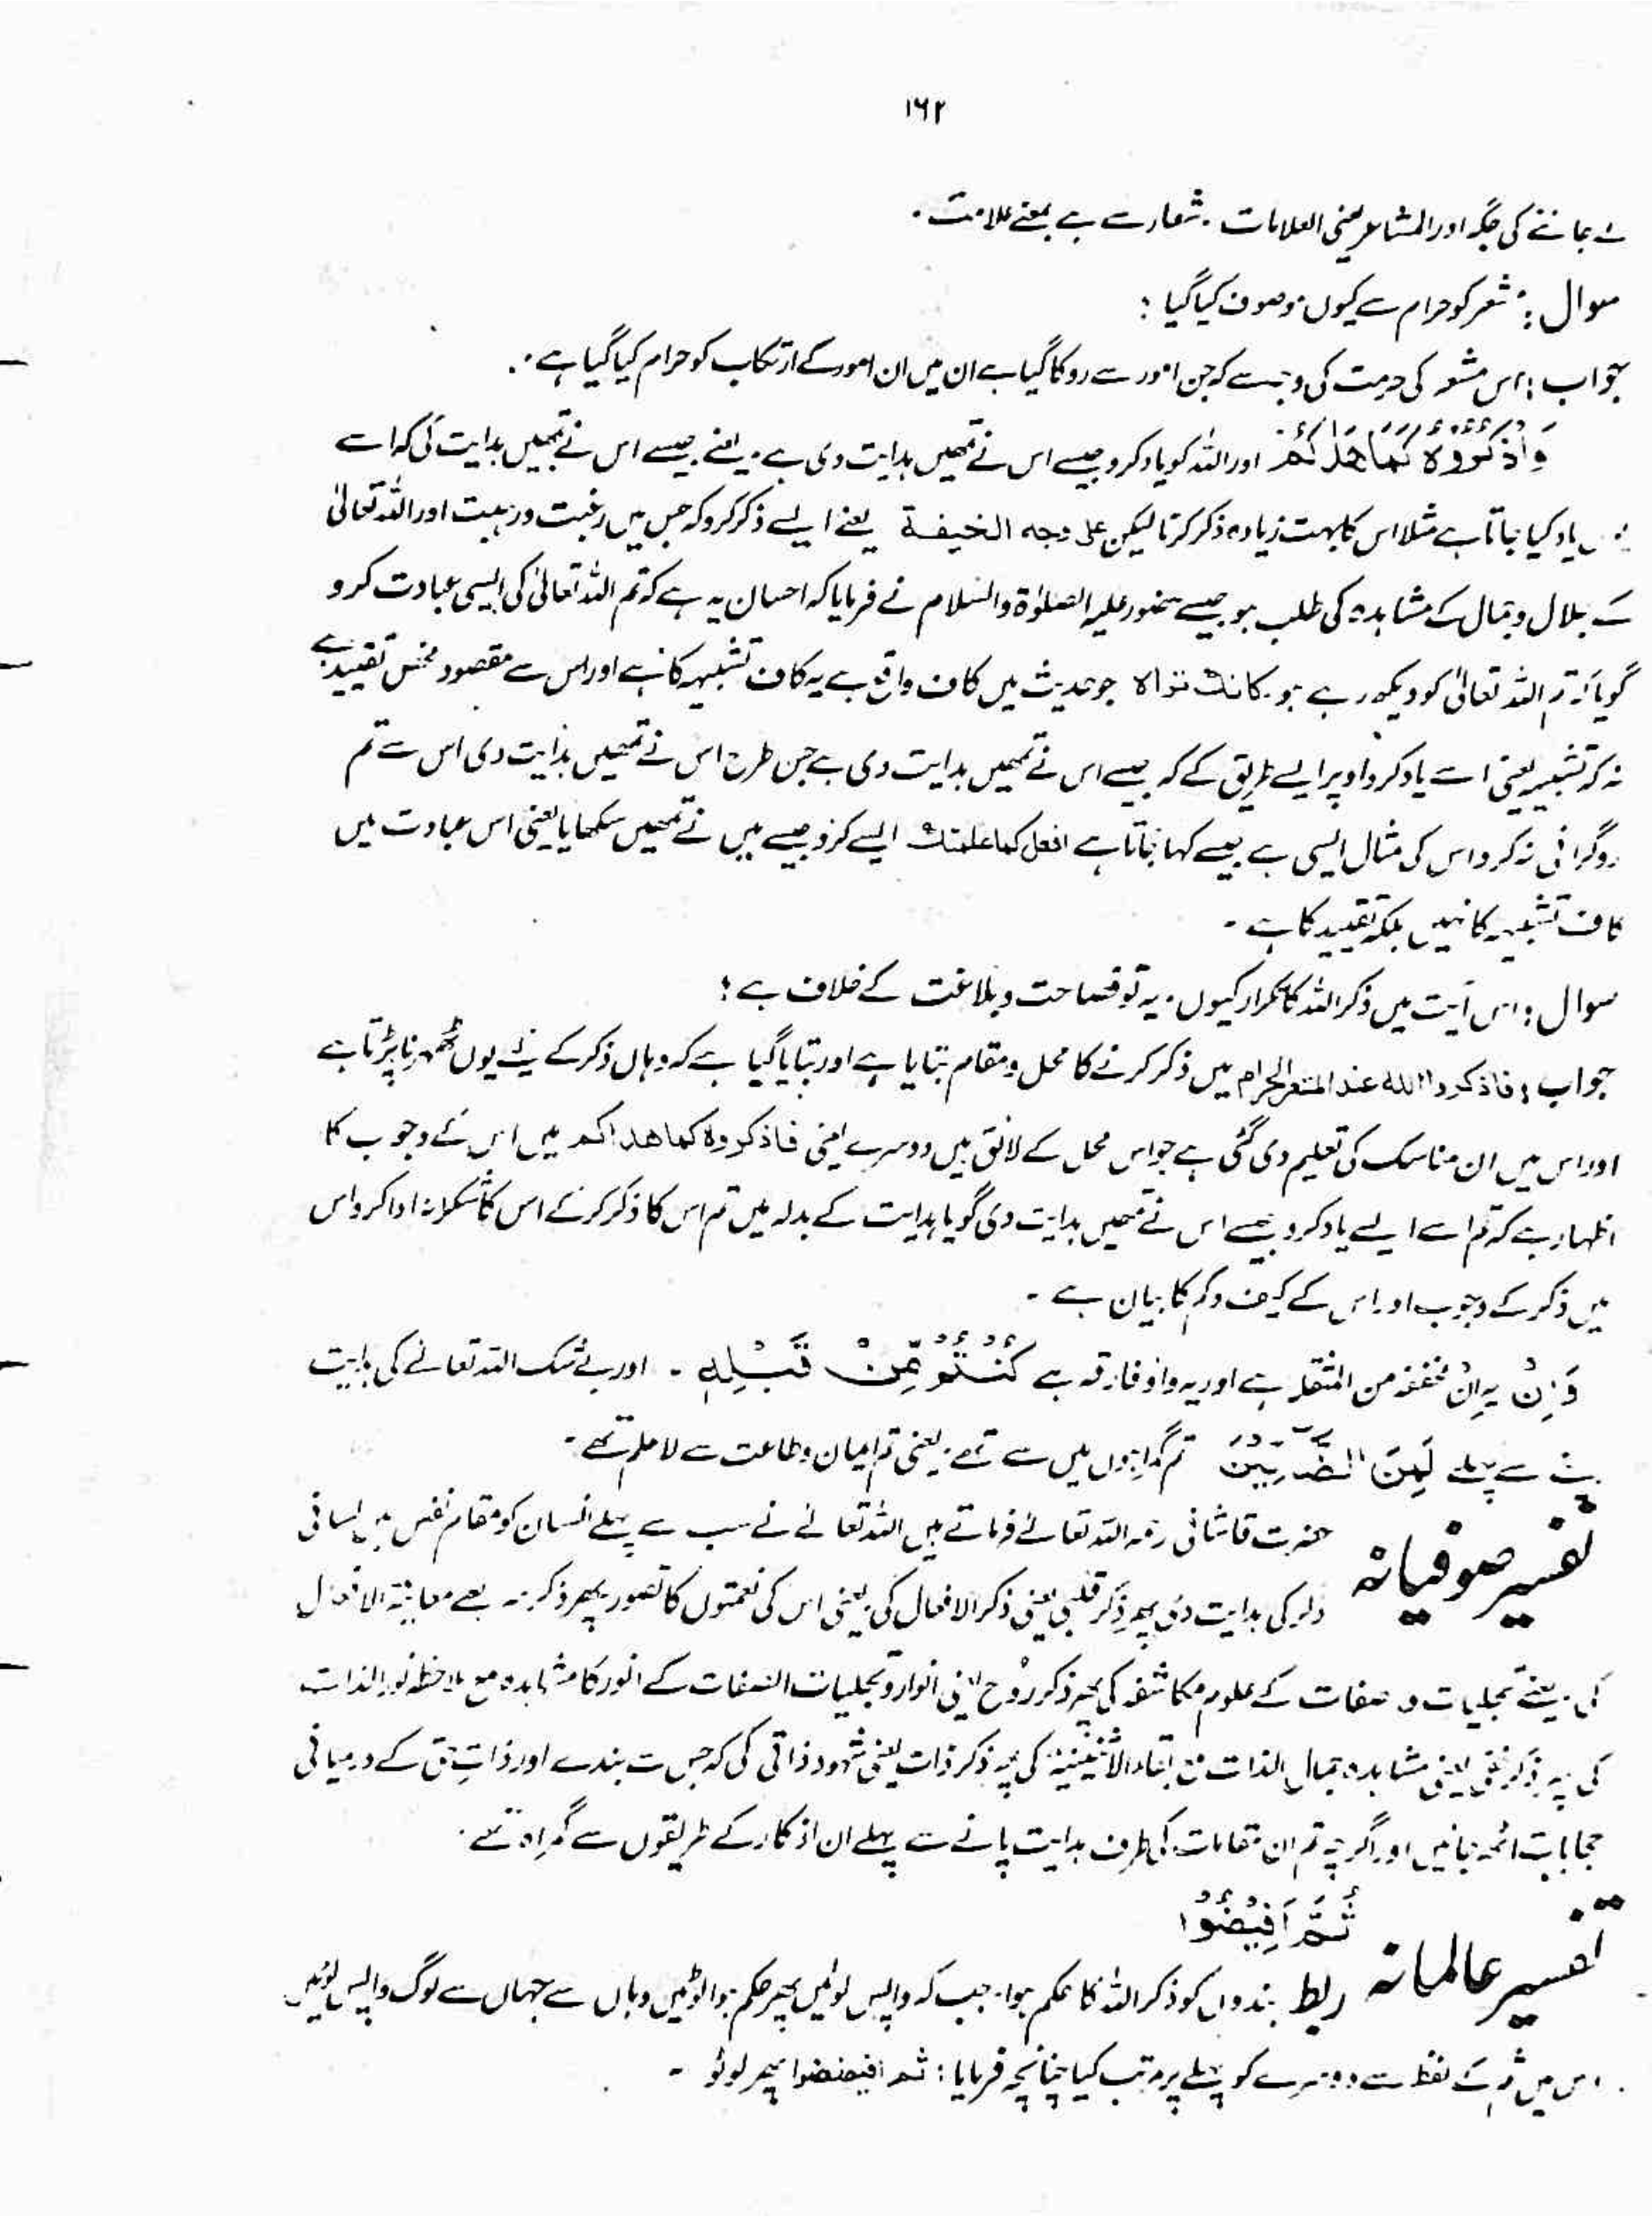 ۱۶۲
سے جاننے کی جگہ اور المشاعر یعنی العلامات ۔ شعار سے ہے بمعنے علامت ۔
سوال : مشعر کو حرام سے کیوں موصوف کیا گیا ؛
جواب : اس مشعر کی حرمت کی وجہ سے کہ جن امور سے روکا گیا ہے ان میں ان امور کے ارتکاب کو حرام کیا گیا ہے ۔
وَاذْكُرُوْهُ كَمَا هَدٰىكُمْ اور اللہ کو یاد کرو جیسے اس نے تمھیں ہدایت دی ہے ۔ یعنے جیسے اس نے تمھیں ہدایت کی کہ اسے
یاد کیا جاتا ہے مثلا اس کا بہت زیادہ ذکر کرنا لیکن علی وجہ الخیفۃ یعنے ایسے ذکر کرو کہ جس میں رغبت و رہبت اور اللہ تعالیٰ
کے جلال و جمال کے مشاہدہ کی طلب ہو جیسے حضور علیہ الصلوٰۃ والسلام نے فرمایا کہ احسان یہ ہے کہ تم اللہ تعالیٰ کی ایسی عبادت کرو
گویا کہ تم اللہ تعالیٰ کو دیکھ رہے ہو ۔ کانک تراہ جو حدیث میں کاف واقع ہے یہ کاف تشبیہہ کا ہے اور اس سے مقصود محض تقیید ہے
نہ کہ تشبیہ یعنی اسے یاد کرو اوپر ایسے طریق کے کہ جیسے اس نے تمھیں ہدایت دی ہے جس طرح اس نے تمھیں ہدایت دی اس سے تم
روگرانی نہ کرو اس کی مثال ایسی ہے جیسے کہا جاتا ہے افعل کما علمتک ایسے کرو جیسے میں نے تمھیں سکھایا یعنی اس عبادت میں
کاف تشبیہ کا نہیں بلکہ تقیید کا ہے ۔
سوال : اس آیت میں ذکر اللہ کا تکرار کیوں ۔ یہ تو فصاحت و بلاغت کے خلاف ہے ؛
جواب : فاذکروا اللہ عند المشعر الحرام میں ذکر کرنے کا محل و مقام بتایا ہے اور بتایا گیا ہے کہ وہاں ذکر کے لئے یوں ٹھہرنا پڑتا ہے
اور اس میں ان مناسک کی تعلیم دی گئی ہے جو اس محل کے لائق ہیں دوسرے یعنی فاذکروہ کما ھداکم میں اس کے وجوب کا
اظہار ہے کہ تم اسے ایسے یاد کرو جیسے اس نے تمھیں ہدایت دی گویا ہدایت کے بدلہ میں تم اس کا ذکر کرکے اس کا شکرانہ ادا کرو اس
میں ذکر کے وجوب اور اس کے کیف و کم کا بیان ہے ۔
وَ اِنْ یہ اِنْ مخففہ من المثقلہ ہے اور یہ واؤ فارقہ ہے كُنْتُمْ مِّنْ قَبْلِهٖ ۔ اور بے شک اللہ تعالےٰ کی ہدایت
سے پہلے لَمِنَ الضَّآلِّيْنَ تم گمراہوں میں سے تھے ۔ یعنی تم ایمان و طاعت سے لاعلم تھے ۔
تفسیر صوفیانہ حضرت قاشانی رحمہ اللہ تعالےٰ فرماتے ہیں اللہ تعالےٰ نے سب سے پہلے انسان کو مقام نفس میں لسانی
ذکر کی ہدایت دی پھر ذکر قلبی یعنی ذکر الافعال کی یعنی اس کی نعمتوں کا تصور پھر ذکر سر جسے معاینۃ الافعال
کی ۔ یعنے تجلیات و صفات کے علوم مکاشفہ کی پھر ذکر روح یعنی انوار و تجلیات الصفات کے انور کا مشاہدہ مع ملاحظہ نور الذات
کی پھر ذکر خفی یعنی مشاہدہ جمال الذات مع بقاء الاثنینیۃ کی پھر ذکر ذات یعنی شہود ذاتی کی کہ جس سے بندے اور ذاتِ حق کے درمیانی
حجابات اٹھ جائیں اور اگرچہ تم ان مقامات کی طرف ہدایت پانے سے پہلے ان اذکار کے طریقوں سے گمراہ تھے ۔
ثُمَّ اَفِيْضُوْا
تفسیر عالمانہ ربط بندوں کو ذکر اللہ کا حکم ہوا ۔ جب کہ واپس لوٹیں پھر حکم ہوا لوٹیں وہاں سے جہاں سے لوگ واپس لوٹیں
اس میں ثم کے لفظ سے دوسرے کو پہلے پر مرتب کیا چنانچہ فرمایا : ثم افیضوا پھر لوٹو ۔